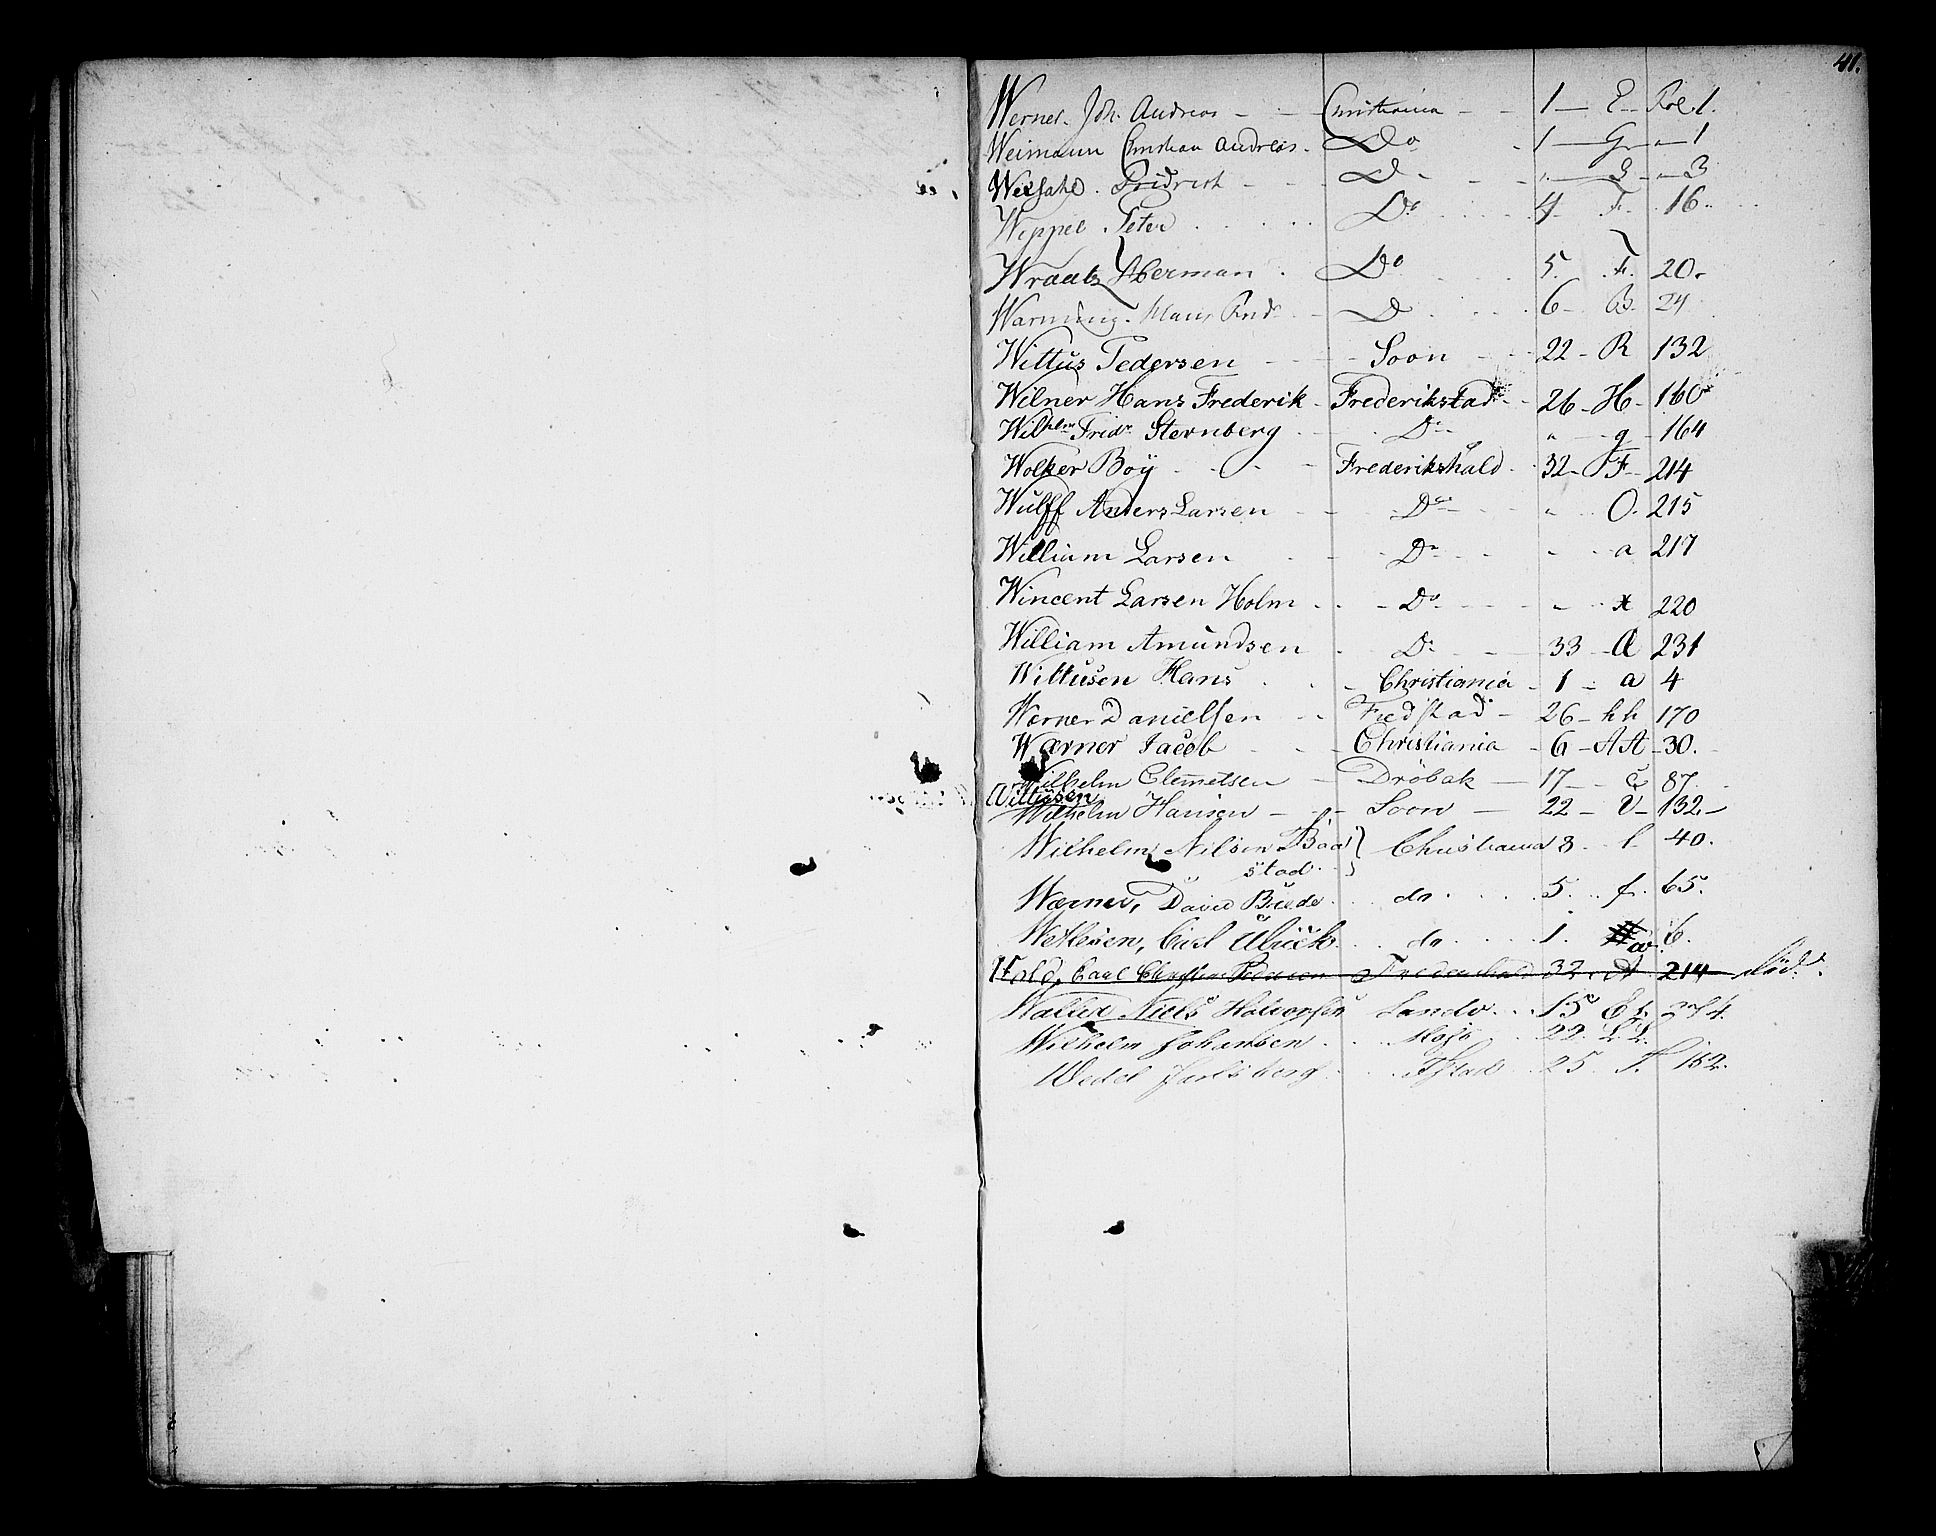 41.
Werner. Joh. Andreas - - Christiania - - 1 - E - Fol. 1.
Weimann Christian Andreas. Do - 1 - G - " 1
Fridrich - - D - - " - 3 - " 3
Wippel. Peter . . . . Do . . . 4 - F. 16.
Wraatz Herman . Do 5. F. 20.
Warning. Claus - D . . . 6 - B. 24
Wittus Pedersen - - - Soon - - 22 - R 132
Wilner Hans Frederik - Frederikstad - 26 - H - 160
Wilhelm Fridr Sternberg - - Do - " - g - 164
Wolker Boÿ - - - - Frederikshald - 32 - F - 214
Wulff Anders Larsen - - - Do - - " O. 215
William Larsen - - Do - - " - a 217
Wincent Larsen Holm . . - Do - - - " - x 220
William Amundsen - Do - - 33 - Æ 231
Wittusen Hans . . - Christiania - 1 - a 4
Wærner Danielsen - - Fredstad - 26 - hh 170
Wærner Jacob - - - Christiania - 6 - AA - 30.
Wilhelm Clemetsen - Drøbak - 17 - 87.
Wittusen
Wilhelm Hansen - - - Soon - 22 - V - 132 -
Wilhelm Nilsen Baa } Christiania 8. l. 40.
stad.
Wærner, David . . do . . . . 5. . . f. 65.
Wetlesen, Carl Ulrick . . do . . . . 1. 6.
Carl Pedersen Frederikshald 32. A 214 Död.
Niels Halvorsen Sandv. . . 15 E 1. 274.
Wilhelm Johansen . . . 22. LL.
Wedel Jarlsberg . . . Fstad . 25. f. 162.